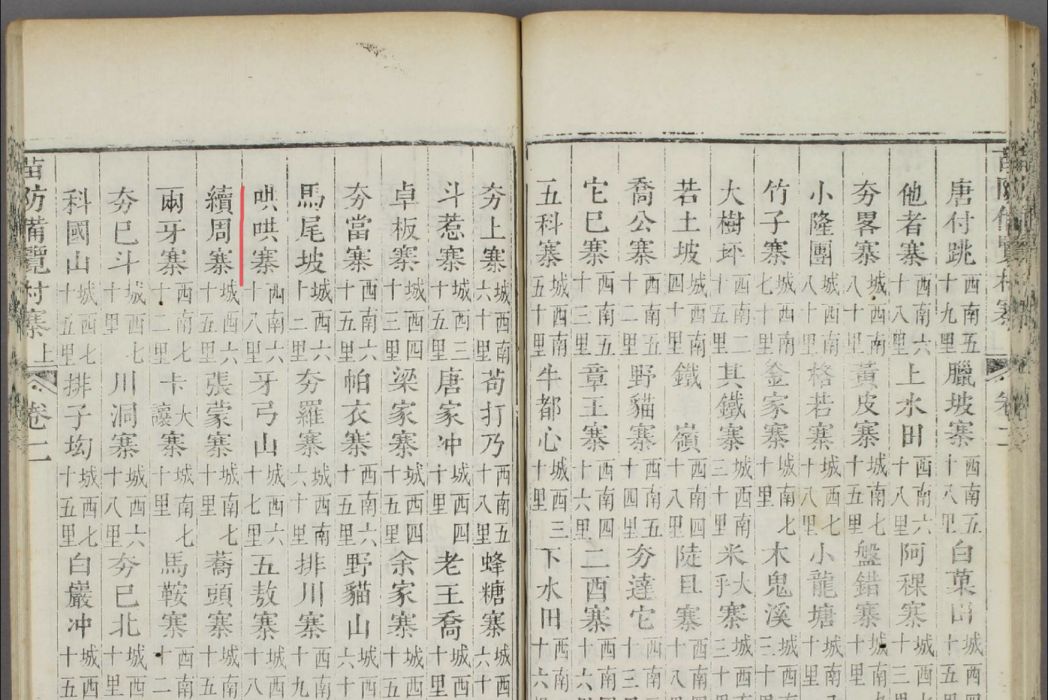 唐付跳西南五十九里臘坡寨西南五十八里白菓田西南十
他者寨城西六十八里上水田西南六十八里阿稞寨城南十三
夯畧寨城南六十八里黃皮寨城南七十五里盤錯寨城南十里
小隆團城南八十里格若寨城南七十八里小龍塘城南十里
竹子寨城南七十里金家寨城南七十里木鬼溪城西三十
大樹坏城西二十五里其鐵寨西南三十里米大乎寨城西三十
若土坡城西四十里鐵嶺西南四十八里陡且寨城西十八
喬公寨西南五十二里野貓寨西南五十四里夯達它西南十三
它巳寨西南五十三里章王寨西南四十六里二酉寨西南十六
五科寨城西五十里牛都心城西三十里下水田西南十六
夯上寨城西南六十里苟打乃西南五十八里蜂糖寨城南六十
斗惹寨城西三十里唐家冲城西四十里老王喬城西十
卓板寨城西四十三里梁家寨城西四十五里余家寨城西十
夯當寨西南六十五里帕衣寨西南六十五里野貓山城西六十
馬尾坡城西六十二里夯羅寨城西南六十里排川寨西南十九
哄哄寨西南六十八里牙弓山城西六十七里五敖寨城西十
續周寨城西六十五里張蒙寨城南七十里蕎頭寨城南十
兩牙寨西南七十二里卡大讓寨城南七十里馬鞍寨西南十二
夯巳斗城西七十里川洞寨城西六十八里夯巳北城西十
科國山城西七十五里排子坳城西七十五里白巖冲城西十五
苗防備覽村寨上 卷二